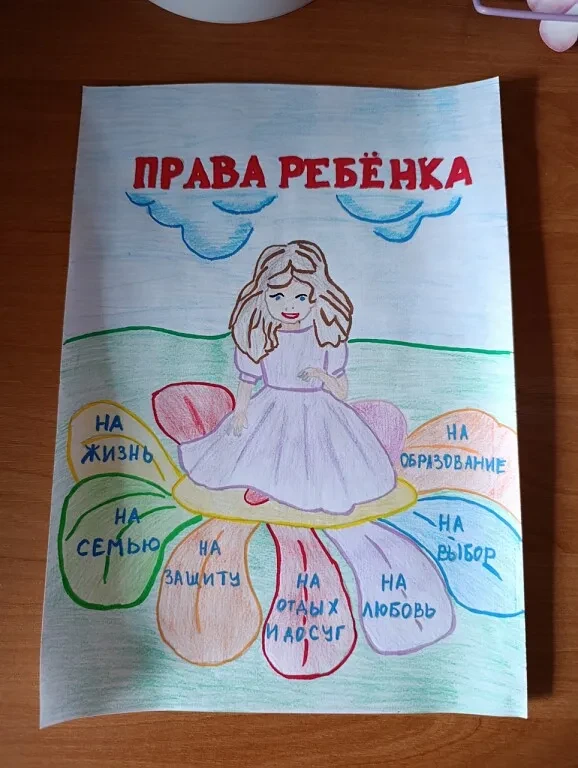 ПРАВА РЕБЁНКА
НА
ЖИЗНЬ
НА
СЕМЬЮ
НА
ЗАЩИТУ
НА
ОТДЫХ
И ДОСУГ
НА
ЛЮБОВЬ
НА
ВЫБОР
НА
ОБРАЗОВАНИЕ